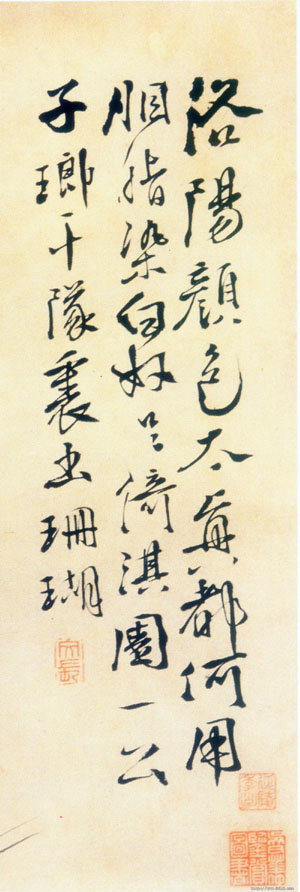 洛陽顏色太真都何用
胭脂染白奴倚淇園一公
子瑯干隊裏出珊瑚
文長